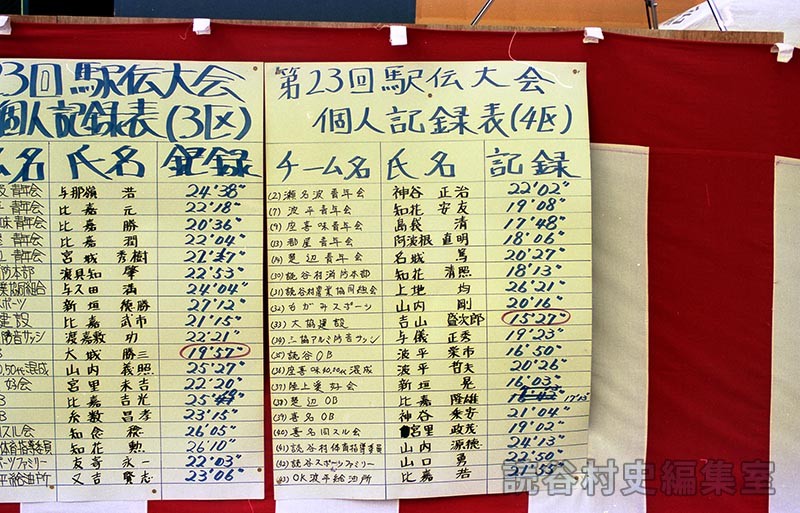 3回駅伝大会
個人記録表(3区)
ム名 氏名 記録
青年会 与那嶺 浩 24'38"
青年会 比嘉 元 22'18"
味青年会 比嘉 勝 20'36"
青年会 比嘉 潤 22'04"
青年会 宮城 秀樹
防本部 渡具知 肇 22'53"
業協同組合 与久田 満 24'04"
スポーツ 新垣 優勝 27'12"
建設 比嘉 武市 21'15"
防音サッシ 渡嘉敷 功 22'21"
B 大城 勝三 19'57"
0,50代混成 山内 義照 25'27"
好会 宮里 末吉 22'20"
B 比嘉 吉光
B 糸数 昌孝 23'15"
スル会 知念 稔 26'05"
体育指導委員 知花 勲 26'10"
ポーツファミリー 友寄 永一 22'03"
平給油所 又吉 賢志 23'06"
第23回駅伝大会
個人記録表(4区)
チーム名 氏名 記録
(2) 瀬名波青年会 神谷 正治 22'02"
(7) 波平青年会 知花 安友 19'08"
(9) 座喜味青年会 島袋 清 17'48"
(13) 都屋青年会 阿波根 直明 18'06"
(14) 楚辺青年会 名城 篤 20'27"
(30) 読谷村消防本部 知花 清照 18'13"
(31) 読谷村農業協同組合 上地 均 26'21"
(32) ちがみスポーツ 山内 剛 20'16"
(33) 大協建設 吉山 盛次郎 15'27"
(34) 三協アルミ防音サッシ 与儀 正秀 19'23"
(35) 読谷OB 波平 栄市 16'50"
(36) 座喜味40,50代混成 波平 哲夫 20'26"
(37) 陸上愛好会 新垣 晃 16'03"
(38) 楚辺OB 比嘉 隆雄 17'13"
(39) 喜名OB 神谷 乗寄 21'04"
(40) 喜名旧スル会 宮里 政茂 19'02"
(41) 読谷村体育指導委員 山内 源徳 24'13"
(42) 読谷スポーツファミリー 山口 勇 22'50"
(43) OK波平給油所 比嘉 浩 21'55"
読谷村史編集室